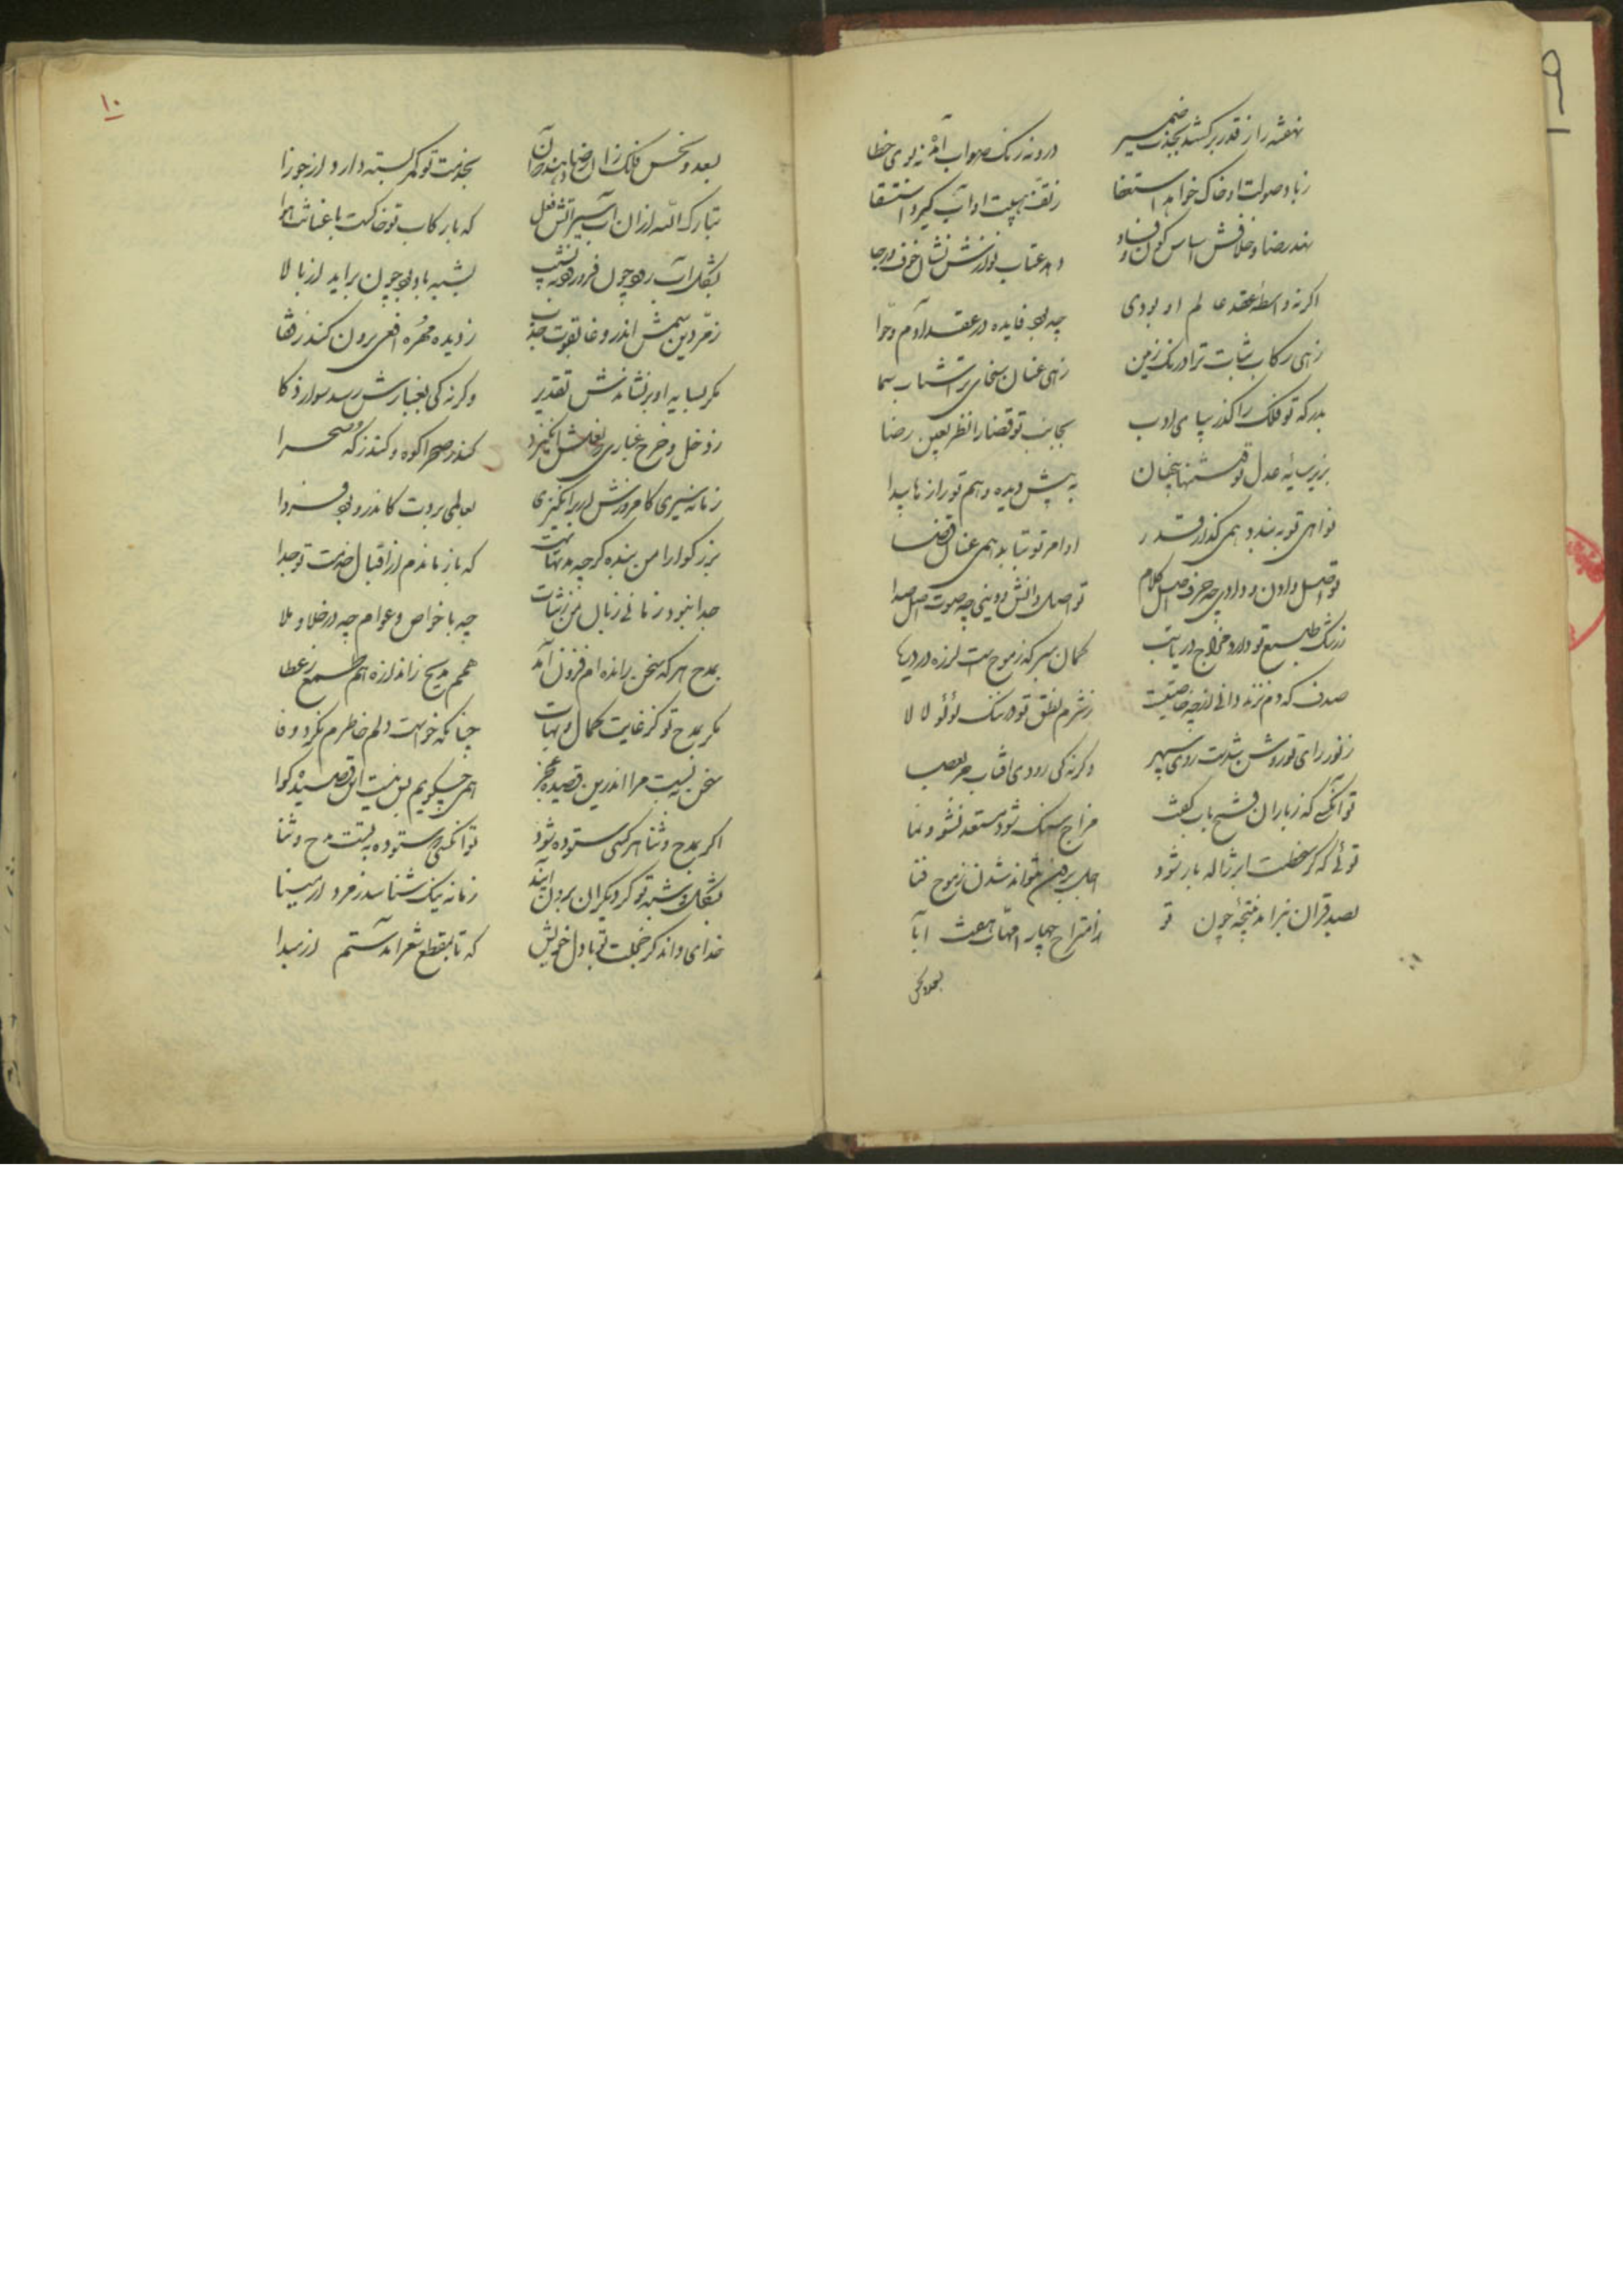 ۹
نهفته راز قدر برکشد بجذب ضمیر درو نه رنک صواب آمده نه بوی خطا
زباد صولت او خاک خواهد استعفا زتف هیبت او آب کیرد استسقا
نهد رضا و خلافش اساس کون و فساد دهد عتاب و نوازش نشان خوف و رجا
اکر نه واسطهٔ عقد عالم او بودی چه بود فایده در عقد آدم و حوا
زهی رکاب ثبات ترا درنک زمین زهی عنان سخای ترا شتاب سما
بدرکه تو فلک را کذر بپای ادب بجانب تو قضا را نظر بعین رضا
بزیر سایهٔ عدل تو فتنها پنهان به پیش دیده وهم تو رازها پیدا
نواهی تو به بندد همی کذار قدر اوامر تو بتابد همی عنان قضا
تو اصل دادن و دادی چه حرف اصل کلام تو اصل دانش و دینی چه صوت اصل صدا
زرشک طبع تو دارد مزاج دریا تب کمان مبر که زموج است لرزه در دریا
صدف که دم نزند دانی از چه خاصیت زشرم نطق تو و از رشک لؤلؤ لالا
زنور رای تو روشن شدست روی سپهر وکرنه کی رودی افتاب جز بعصا
تو آنکسی که زباران فتح باب کفت مزاج سنک شود مستعد نشو و نما
توئی که کر سخطت ابر ژاله بار شود اجل برون نتواند شدن زموج فنا
بصد قران بنزاید نتیجهٔ چون تو زامتزاج چهار امّهات و هفت ابا
بسعد و نحس
۱۰
بسعد و نحس فلک زان رضا دهند که آن بخدمت تو کمر بسته دارد از جوزا
تبارک الله ازان آب سیر آتش فعل که با رکاب تو خاکست با عنانت هوا
بشکل آب رود چون فرو رود به نشیب بشبه باد بود چون براید از بالا
زمّردین سمش اندر وغا بقوت جذب زدیده مهرهٔ افعی برون کند زقفا
مکر بسایه او برنشاندش تقدیر وکرنه کی بغبارش رسد سوار ذکا
زدخل و خرج غباری که نعلش انکیزد کند صحرا کوه و کند زکُه صحرا
زمانه سیری کامروزش ار برانکیزی بعالمی بردت کاندرو بود فردا
بزرکوارا من بنده کرچه مدتهاست که باز ماندم از اقبال خدمت تو جدا
جدا نبود زمانی زبان من زثنات چه با خواص و عوام چه در خلا و ملا
بمدح هرکه سخن رانده ام فزون آمد همم مدیح زاندازه هم طمع زعطا
مکر بمدح تو کز غایت کمال و بهات چنانکه خواست دلم خاطرم نکرد وفا
سخن نسیب مرا اندرین قصیده عجز همی چکویم بس نیست این قصیده کوا
اکر بمدح و ثنا هر کسی ستوده شود تو آنکسی که ستوده بتست مدح و ثنا
بشکل و شبه تو کر دیکران برون آیند زمانه نیک شناسد زمرد از مینا
خدای داند کز خجلت تو با دل خویش که تا بمقطع شعر امدستم از مبدا